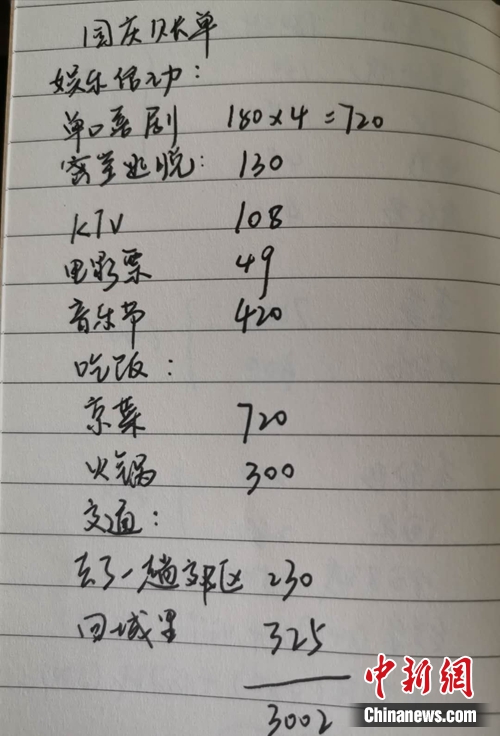 国庆账单
娱乐活动:
单口喜剧 180×4=720
密室逃脱: 130
KTV 108
电影票 49
音乐节 420
吃饭:
京菜 720
火锅 300
交通:
去了一趟郊区 230
回城里 325
3002
中新网
Chinanews.com